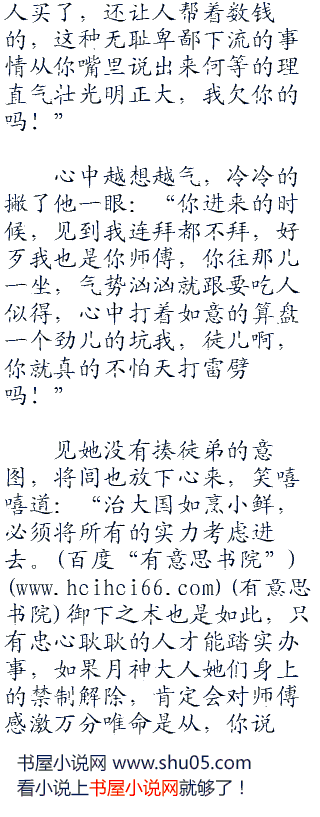 人买了，还让人帮着数钱
的，这种无耻卑鄙下流的事
情从你嘴里说出来何等的理
直气壮光明正大，我欠你的
吗！”
心中越想越气，冷冷的
撇了他一眼：“你进来的时
候，见到我连拜都不拜，好
歹我也是你师傅，你往那儿
一坐，气势汹汹就跟要吃人
似得，心中打着如意的算盘
一个劲儿的坑我，徒儿啊，
你就真的不怕天打雷劈
吗！”
见她没有揍徒弟的意
图，将闾也放下心来，笑嘻
嘻道：“治大国如烹小鲜，
必须将所有的实力考虑进
去。(百度“有意思书院”)
(www.hcihci66.com)(有意思
书院)御下之术也是如此，只
有忠心耿耿的人才能踏实办
事，如果月神大人她们身上
的禁制解除，肯定会对师傅
感激万分唯命是从，你说
书屋小说网 www.shu05.com
看小说上书屋小说网就够了！